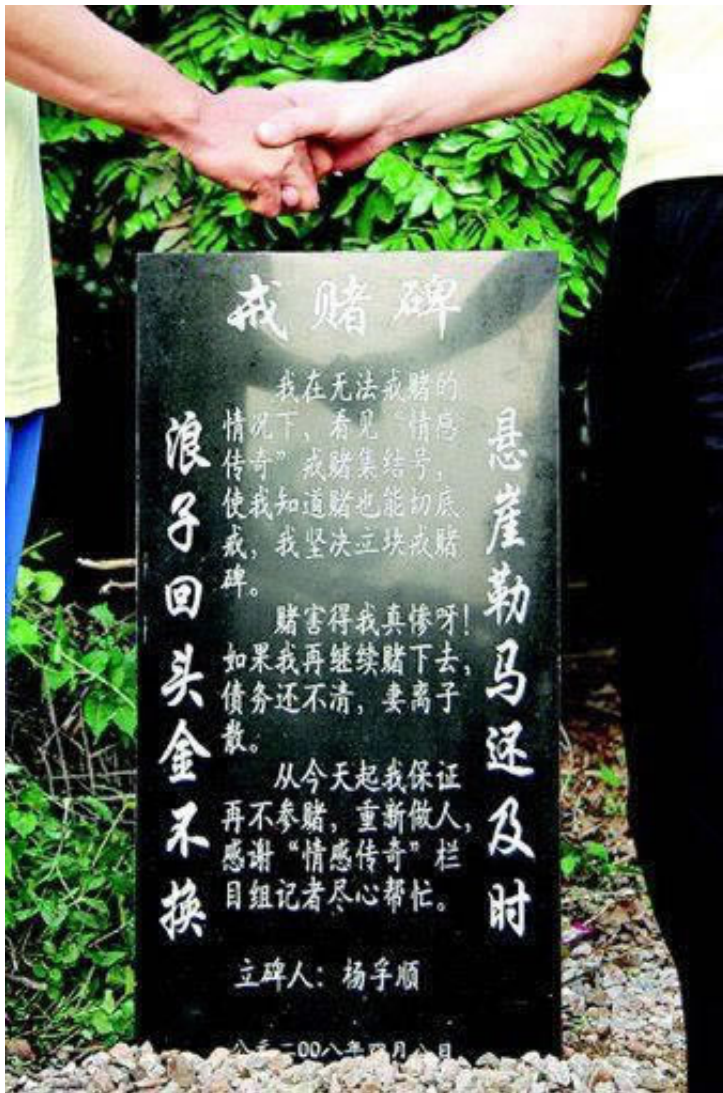 戒赌碑
浪子回头金不换
我在无法戒赌的
情况下，看见“情感
传奇”戒赌集结号，
使我知道赌也能切底
戒，我坚决立块戒赌
碑。
赌害得我真惨呀！
如果我再继续赌下去，
债务还不清，妻离子
散。
从今天起我保证
再不参赌，重新做人，
感谢“情感传奇”栏
目组记者尽心帮忙。
悬崖勒马还及时
立碑人：杨孚顺
二00八年四月八日